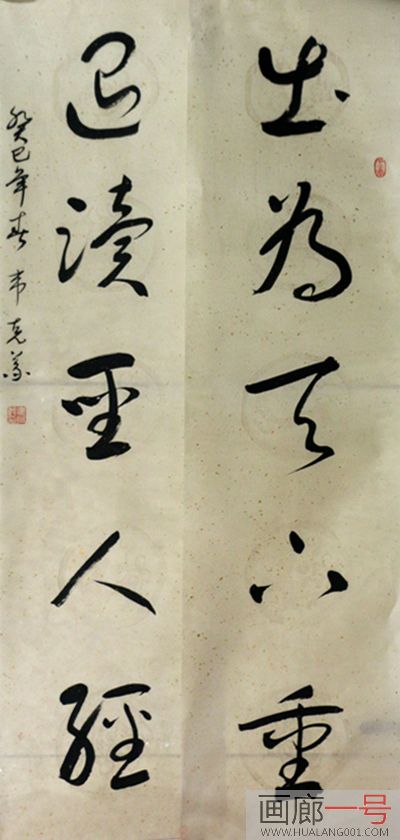 出为天下重
退读聖人經
癸巳年春韦克义
画廊一号
WWW.HUALANG001.COM